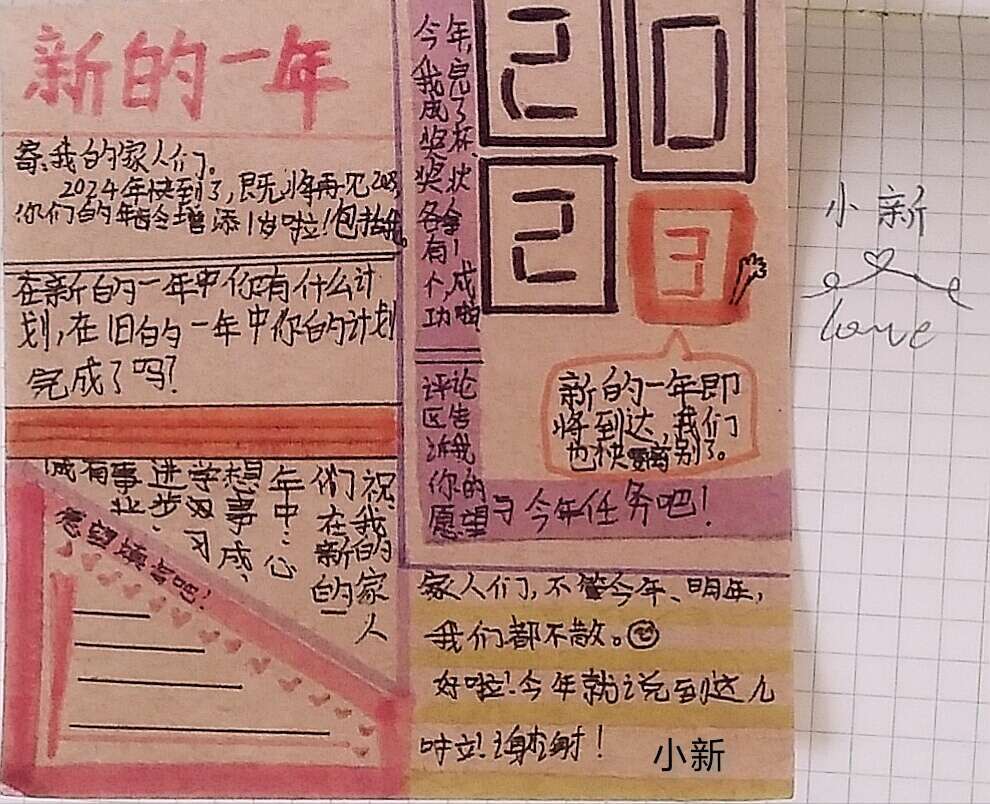 新的一年
寄:我的家人们。
2024年快到了,即将再见2023
你们的年龄会增添1岁啦!包括我。
在新的一年中你有什么计
划,在旧的一年中你的计划
完成了吗?
祝我的家人
们在新的一
年中:心
想事成、
学习
进步、
事业
有
成
愿望填写吧!
今年,我完成了
奖杯、奖状
各拿
有1
个,成
功啦
评论
区告
诉我
你的
愿望与今年任务吧!
2023
新的一年即
将到达,我们
也快要离别了。
家人们,不管今年、明年,
我们都不散。
好啦!今年就说到这儿
啦!谢谢!
小新
小新
love